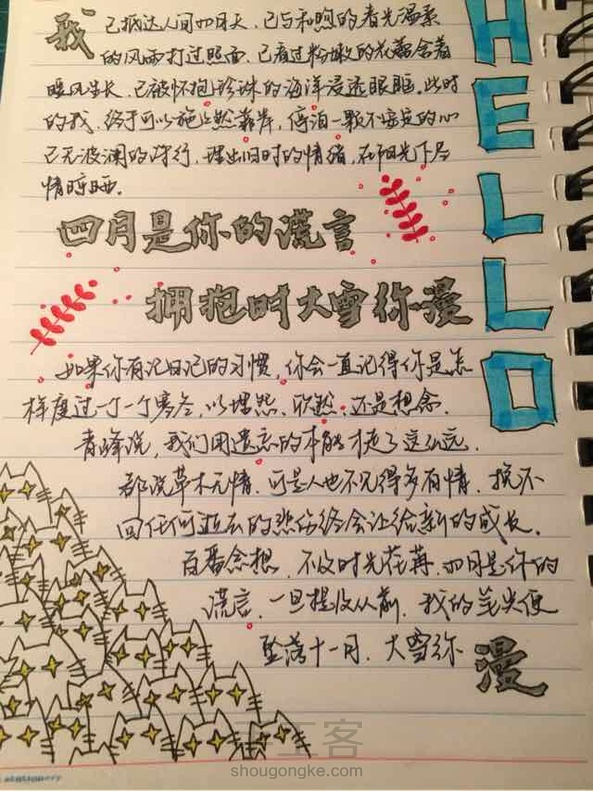 HELLO
我已抵达人间四月天，已与和煦的春光温柔
的风雨打过照面，已看过粉嫩的花蕾含着
暖风生长，已被怀抱珍珠的海洋浸透眼眶。此时
的我，终于可以施施然靠岸，停泊一颗不安定的心
已无波澜的踌行，理出旧时的情绪，在阳光下尽
情晾晒。
四月是你的谎言
拥抱时大雪弥漫
如果你有记日记的习惯，你会一直记得你是怎
样度过一个一个寒冬，以埋怨、欣然、还是想念。
青峰说，我们用遗忘的本能才走了这么远。
都说草木无情，可是人也不见得多有情，挽不
回任何逝去的悲伤终会让给新的成长。
百番念想，不及时光荏苒，四月是你的
谎言，一旦提及从前，我的笔尖便
坠落十一月，大雪弥漫
手工客
shougongke.com